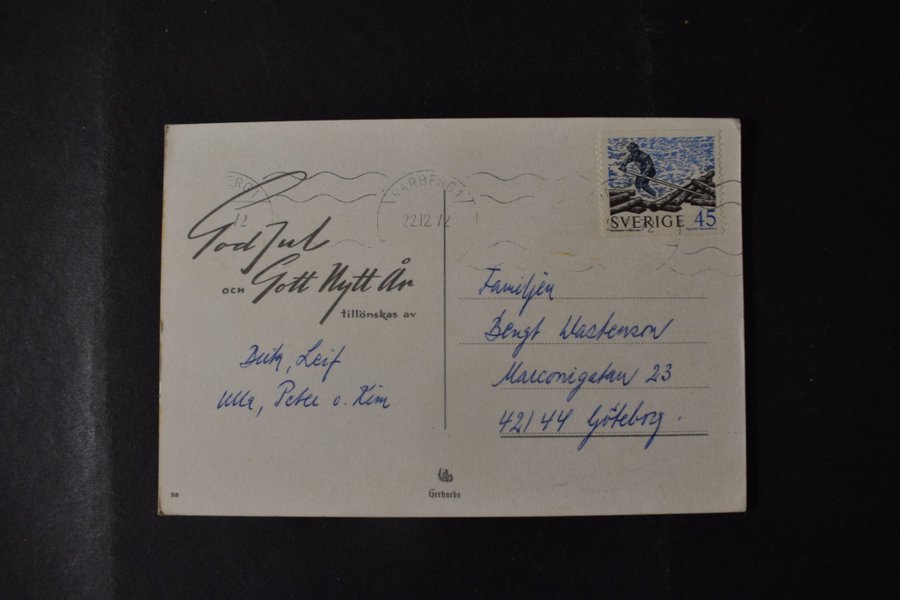 VARBERG 1
22.12.72
SVERIGE 45
God Jul
OCH Gott Nytt År
tillönskas av
Leif
Ulla, Peter o. Kim
Familjen
Bengt Wastenson
Marconigatan 23
421 44 Göteborg.
Gerhards